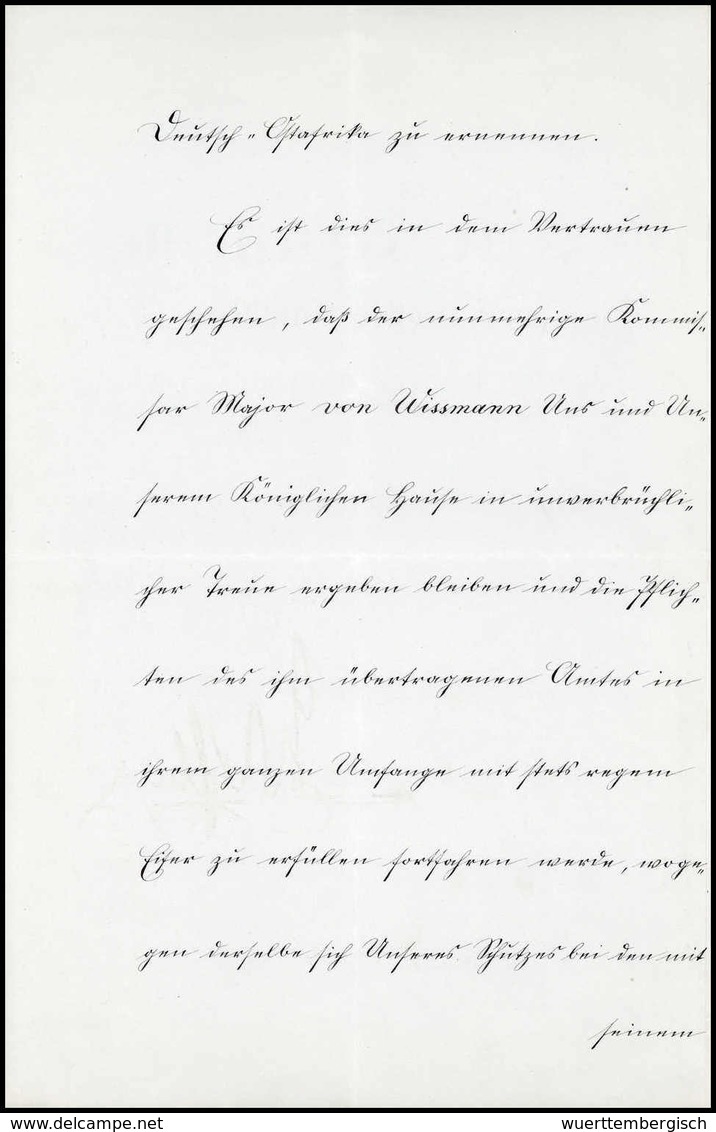 Deutsch-Ostafrika zu ernennen.
Es ist dies in dem Vertrauen
geschehen, daß der nunmehrige Kommis-
sar Major von Wissmann Uns und Un-
serem Königlichen Hause in unverbrüchli-
cher Treue ergeben bleiben und die Pflich-
ten des ihm übertragenen Amtes in
ihrem ganzen Umfange mit stets regem
Eifer zu erfüllen fortfahren werde, woge-
gen derselbe sich Unseres Schutzes bei den mit
seinem
www.delcampe.net
wuerttembergisch